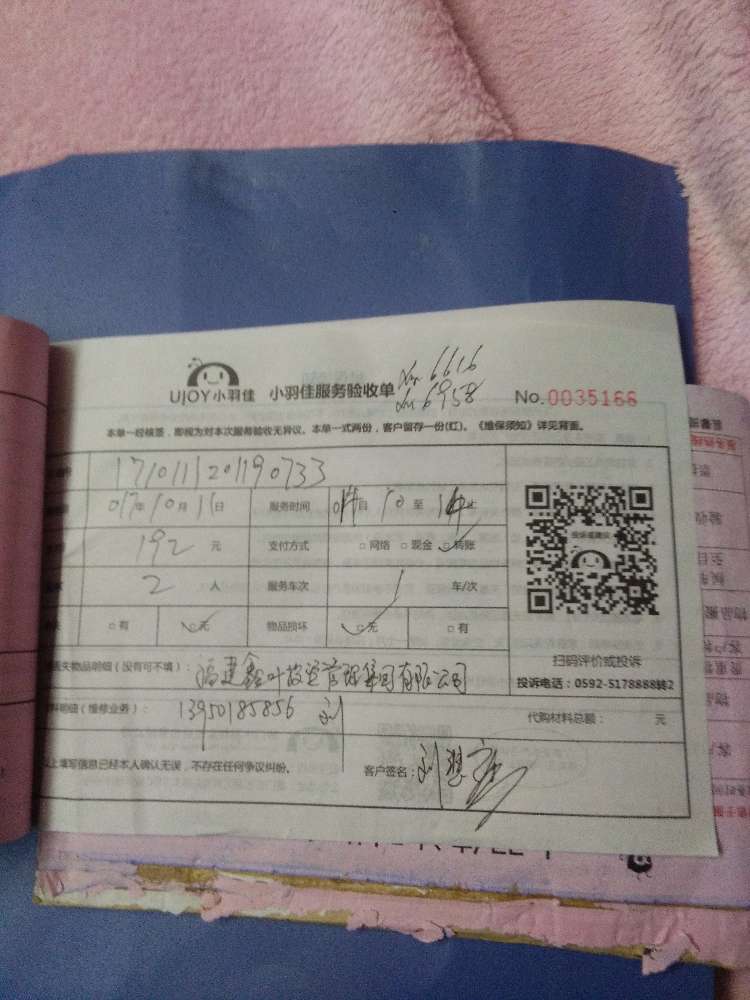 UJOY小羽佳 小羽佳服务验收单 No.0035166
No 6616
No 6958
本单一经核签，即视为对本次服务验收无异议。本单一式两份，客户留存一份(红)。《维保须知》详见背面。
171011201190733
017年10月11日 服务时间 自10至14止
192 元 支付方式 □网络 □现金 □转账
2 人 服务车次 1 车/次
□有 □无 物品损坏 □无 □有
投诉或建议
扫码评价或投诉
投诉电话：0592-5178888转2
丢失物品明细（没有可不填）：福建鑫叶投资管理集团有限公司
料明细（维修业务）：13950185856 刘 代购材料总额： 元
上填写信息已经本人确认无误，不存在任何争议纠纷。 客户签名：刘